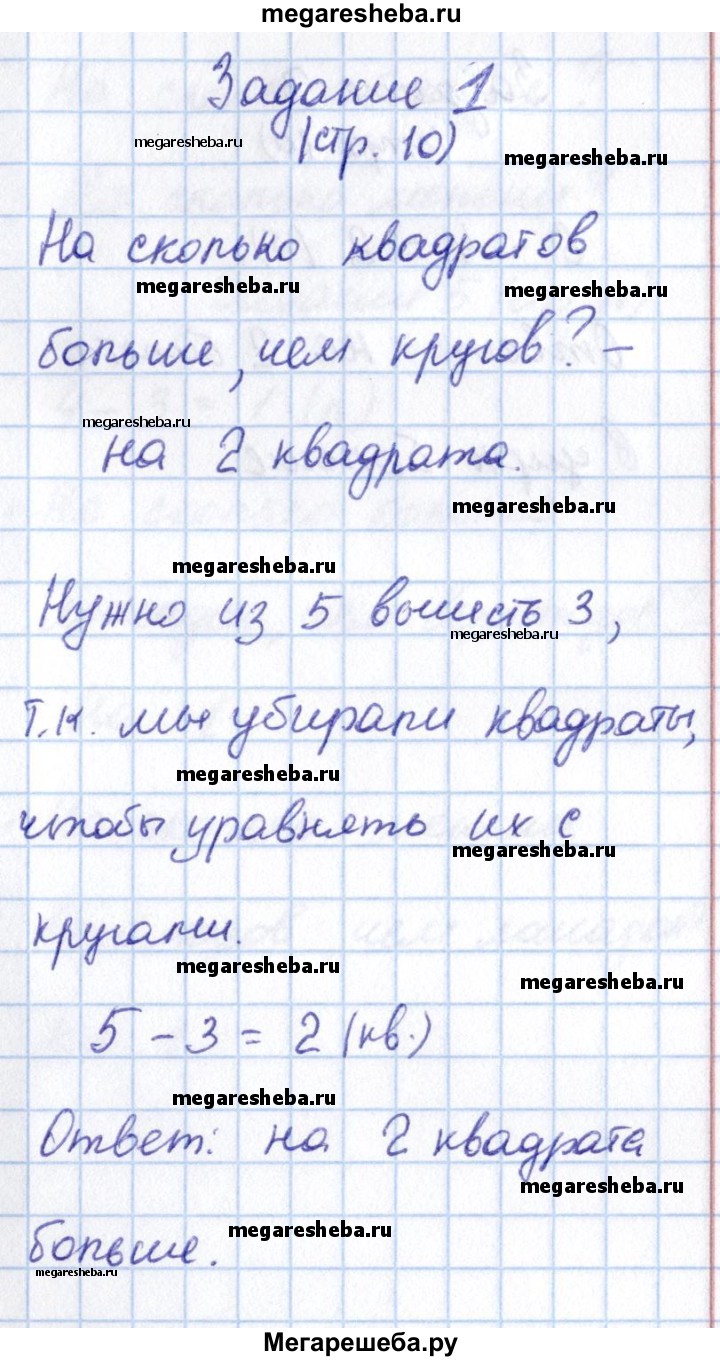 megaresheba.ru
Задание 1
megaresheba.ru
(стр. 10)
megaresheba.ru
На сколько квадратов
megaresheba.ru
megaresheba.ru
больше, чем кругов? –
megaresheba.ru
на 2 квадрата.
megaresheba.ru
megaresheba.ru
Нужно из 5 вычесть 3,
megaresheba.ru
т.к. мы убирали квадраты,
megaresheba.ru
чтобы уравнять их с
megaresheba.ru
кругами.
megaresheba.ru
megaresheba.ru
5 – 3 = 2 (кв.)
megaresheba.ru
Ответ: на 2 квадрата
megaresheba.ru
больше.
megaresheba.ru
megaresheba.ru
Мегарешеба.ру